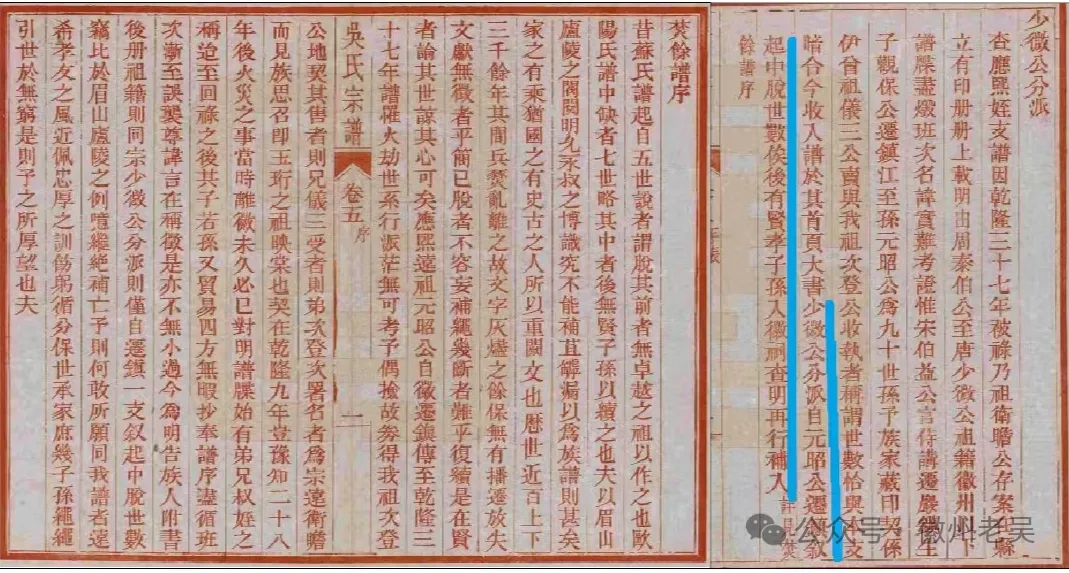 少微公分派
杏應熙姪支譜因乾隆三十七年被祿乃祖衛瞻公存案丹縣
立有印册册上載明出周泰伯公至唐少微公祖籍徽州以下
譜牒盡燬班次名諱實難考證惟宋伯益公言侍講遷嚴鎮生
子觀保公遷鎮江至孫元昭公為九十世孫予族家藏印契係
伊曾祖儀三公賣與我祖次登公收執者稱謂世數恰與支
暗合今收入譜於其首頁大書少微公分派自元昭公遷敘
起中脫世數俟後有賢孝子孫入徽祠查明再行補入 詳見焚
餘譜序
焚餘譜序
昔蘇氏譜起自五世說者謂脫其前者無卓越之祖以作之也歐
陽氏譜中缺者七世略其中者後無賢子孫以續之也夫以眉山
廬陵之閥閱明允永叔之博識究不能補苴罅漏以為族譜則甚矣
家之有乘猶國之有史古之人所以重闕文也歷世近百上下
三千餘年其間兵燹亂離之故文字灰燼之餘保無有播遷放失
文獻無徵者乎簡已脫者不容妄補繩幾斷者難乎復續是在賢
者論其世諒其心可矣應熙遠祖元昭公自徽遷鎮傳至乾隆三
十七年譜罹火劫世系行派茫無可考予偶撿故券得我祖次登
吳氏宗譜 卷五 序 一
公地契其售者則兄儀三受者則弟次登次署名者為宗遠衛瞻
而見族思召即玉珩之祖映棠也契在乾隆九年豈豫知二十八
年後火災之事當時離徽未久必已對明譜牒始有弟兄叔姪之
稱迨至回祿之後其子若孫又貿易四方無暇抄奉譜序盡循班
次漸至誤襲尊諱言在稱徵是亦不無小過今為明告族人附書
後册祖籍則同宗少微公分派則僅自遷鎮一支敘起中脫世數
竊比於眉山廬陵之例噫繼絕補亡予則何敢所願同我譜者遠
希孝友之風近佩忠厚之訓飭躬循分保世承家庶幾子孫繩繩
引世於無窮是則予之所厚望也夫
公众号 · 徽州老吴